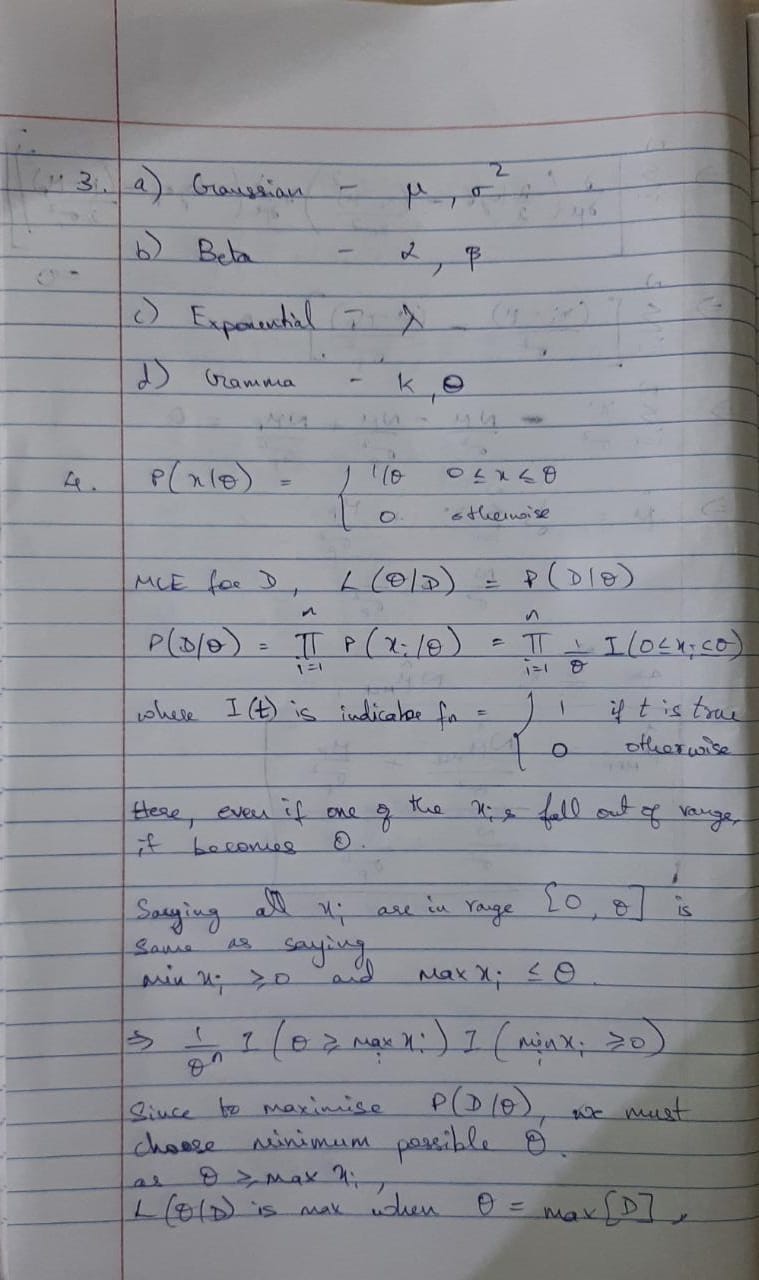 3. a) Gaussian - μ, σ²
b) Beta - α, β
c) Exponential - λ
d) Gamma - k, θ
4. P(x|θ) = { 1/θ 0 ≤ x ≤ θ
0 otherwise
MLE for D, L(θ|D) = P(D|θ)
P(D|θ) = n∏i=1 P(xi|θ) = n∏i=1 1/θ I(0≤xi≤θ)
where I(t) is indicator fn = { 1 if t is true
0 otherwise
Here, even if one of the xi's fall out of range,
it becomes 0.
Saying all xi are in range [0, θ] is
same as saying
min xi ≥ 0 and max xi ≤ θ.
⇒ 1/θⁿ I(θ ≥ max xi) I(min xi ≥ 0)
Since to maximise P(D|θ), we must
choose minimum possible θ.
as θ ≥ max xi,
L(θ|D) is max when θ = max[D],